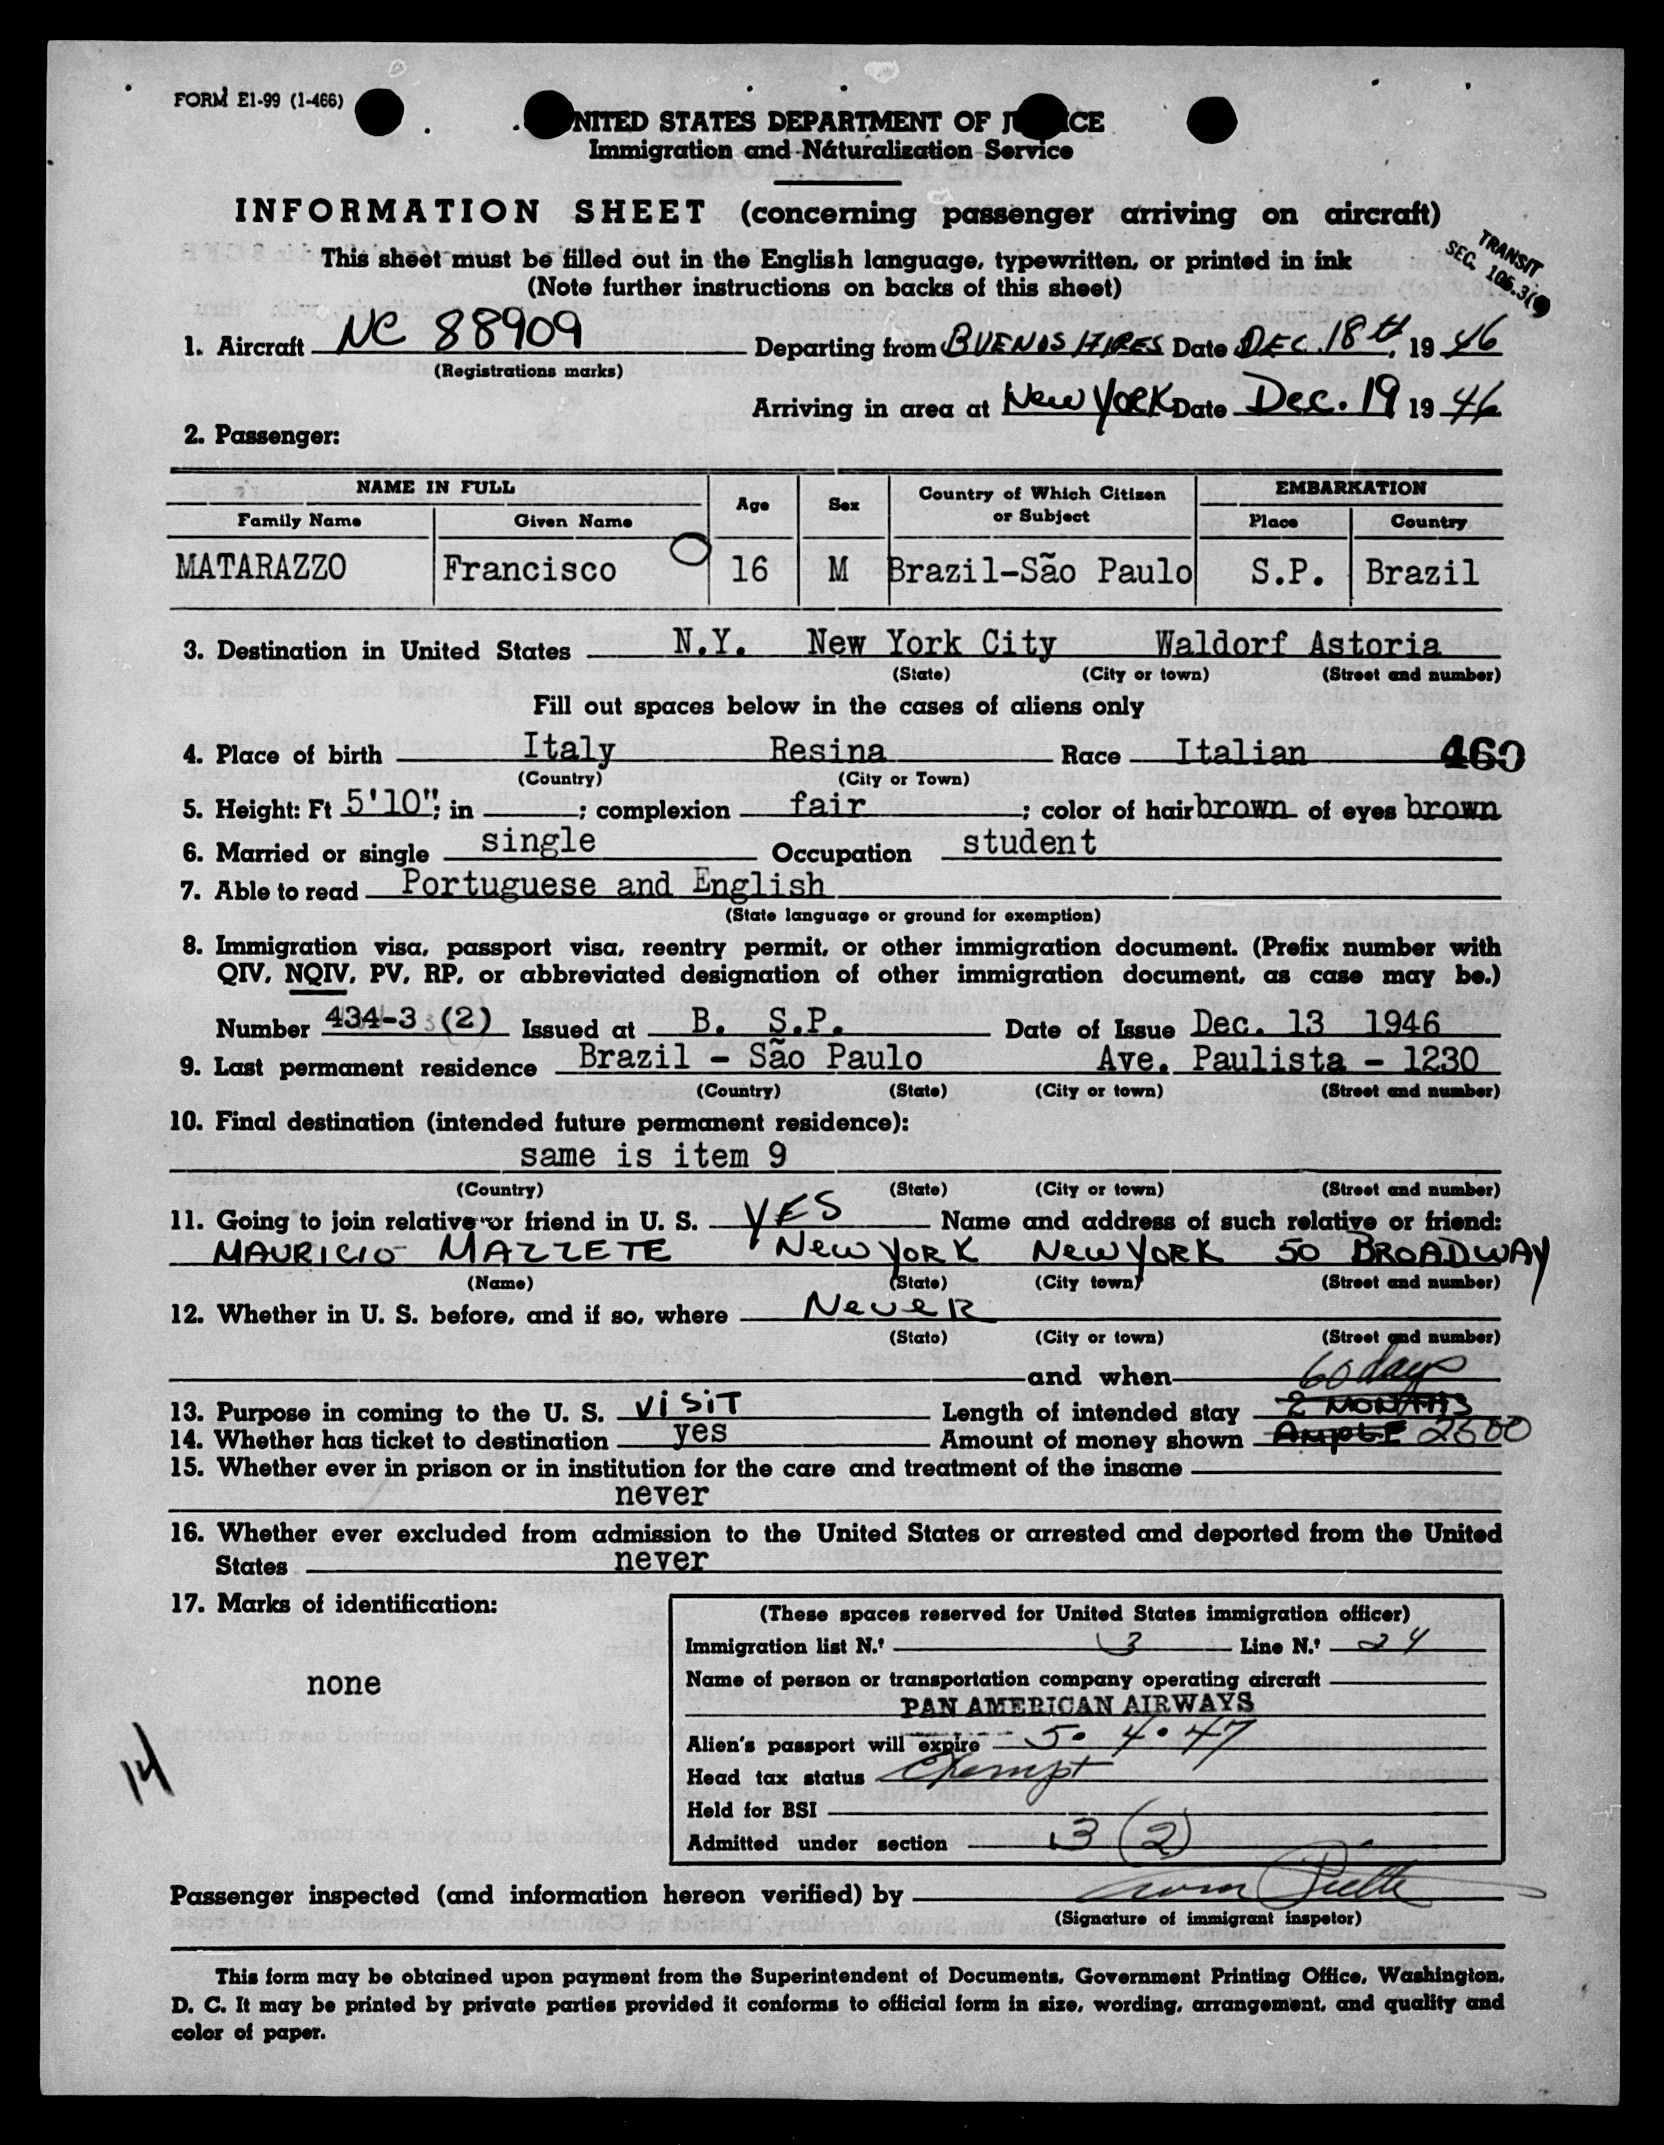 FORM E1-99 (1-466)
UNITED STATES DEPARTMENT OF JUSTICE
Immigration and Naturalization Service
INFORMATION SHEET (concerning passenger arriving on aircraft)
TRANSIT
SEC. 105.3(
This sheet must be filled out in the English language, typewritten, or printed in ink
(Note further instructions on backs of this sheet)
1. Aircraft NC 88909 Departing from BUENOS AIRES Date DEC. 18th, 19 46
(Registrations marks)
Arriving in area at New York Date Dec. 19 19 46
2. Passenger:
NAME IN FULL Age Sex Country of Which Citizen or Subject EMBARKATION
Family Name Given Name Place Country
MATARAZZO Francisco 16 M Brazil-São Paulo S.P. Brazil
3. Destination in United States N.Y. New York City Waldorf Astoria
(State) (City or town) (Street and number)
Fill out spaces below in the cases of aliens only
4. Place of birth Italy Resina Race Italian 460
(Country) (City or Town)
5. Height: Ft 5'10"; in ; complexion fair ; color of hair brown of eyes brown
6. Married or single single Occupation student
7. Able to read Portuguese and English
(State language or ground for exemption)
8. Immigration visa, passport visa, reentry permit, or other immigration document. (Prefix number with
QIV, NQIV, PV, RP, or abbreviated designation of other immigration document, as case may be.)
Number 434-3 (2) Issued at B. S.P. Date of Issue Dec. 13 1946
9. Last permanent residence Brazil - São Paulo Ave. Paulista - 1230
(Country) (State) (City or town) (Street and number)
10. Final destination (intended future permanent residence):
same is item 9
(Country) (State) (City or town) (Street and number)
11. Going to join relative or friend in U. S. YES Name and address of such relative or friend:
MAURICIO MAZZETE New York New York 50 BROADWAY
(Name) (State) (City town) (Street and number)
12. Whether in U. S. before, and if so, where Never
(Stato) (City or town) (Street and number)
and when 60 days
13. Purpose in coming to the U. S. visit Length of intended stay 2 MONTHS
14. Whether has ticket to destination yes Amount of money shown AMPLE 2500
15. Whether ever in prison or in institution for the care and treatment of the insane
never
16. Whether ever excluded from admission to the United States or arrested and deported from the United
States never
17. Marks of identification:
none
14
(These spaces reserved for United States immigration officer)
Immigration list N.º 3 Line N.º 24
Name of person or transportation company operating aircraft
PAN AMERICAN AIRWAYS
Alien's passport will expire 5-4-47
Head tax status Exempt
Held for BSI
Admitted under section 3 (2)
Passenger inspected (and information hereon verified) by
(Signature of immigrant inspetor)
This form may be obtained upon payment from the Superintendent of Documents, Government Printing Office, Washington,
D. C. It may be printed by private parties provided it conforms to official form in size, wording, arrangement, and quality and
color of paper.